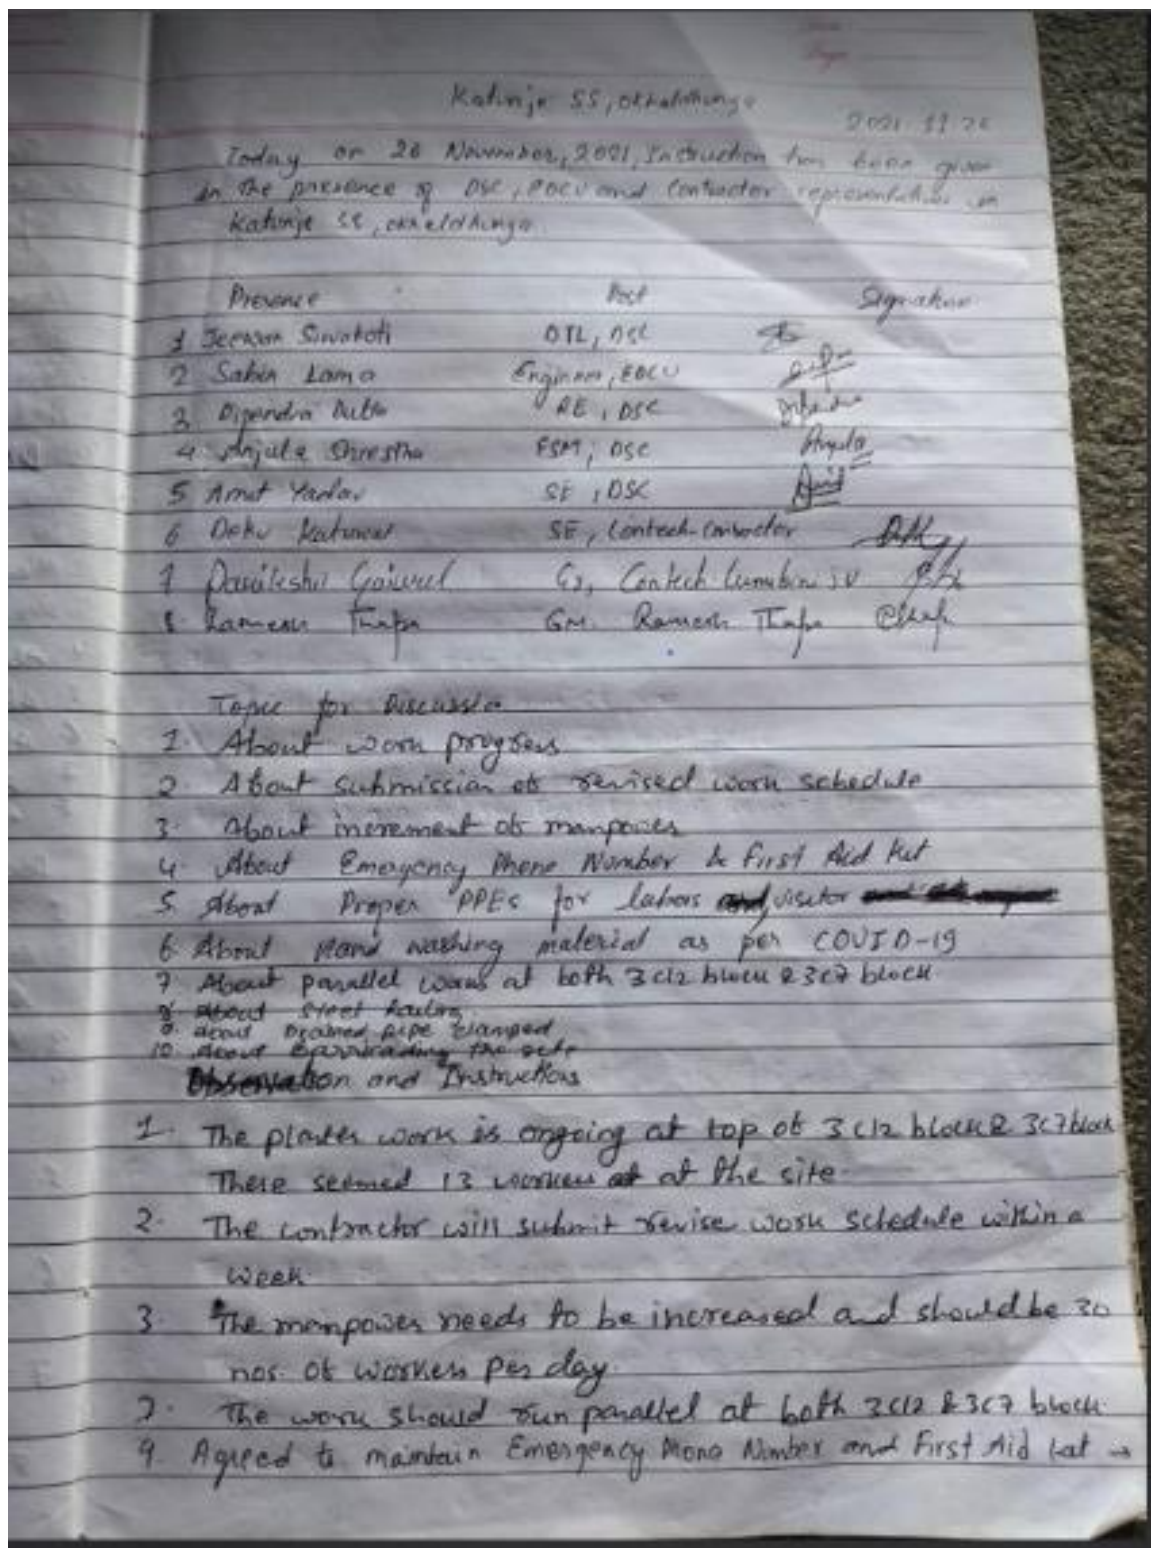 Katunje SS, Okhaldhunga
2021.11.26
Today on 26 November, 2021, Instruction has been given
in the presence of DSC, and Contractor representatives in
Katunje SS, okhaldhunga.
Presence Post Signature
1 Jeewan Siwakoti DTL, DSC
2 Sabin Lama Engineer,
3. Dipendra RE, DSC
4 Anjula Shrestha ESM, DSC Anjula
5 Amit Yadav SE, DSC Amit
6 SE, Contech-
7 Contech Lumbini JV
8. Ramesh Thapa GM. Ramesh Thapa
Topic for Discussio
1. About work progress
2. About submission of revised work schedule
3. About increment of manpower
4. About Emergency Phone Number & First Aid Kit
5. About Proper PPEs for labors visitor
6. About Hand washing material as per COVID-19
7 About parallel works at both 3c12 block & 3c7 block
8 About Steel Railing
9. about Drained pipe clamped
10. About Barricading the site
Observation and Instructions
1. The plaster work is ongoing at top of 3c12 block & 3c7 block
There seemed 13 workers at the site.
2. The contractor will submit revise work schedule within a
week.
3. The manpower needs to be increased and should be 30
nos. of workers per day.
7. The work should run parallel at both 3c12 & 3c7 block.
4. Agreed to maintain Emergency Number and First Aid